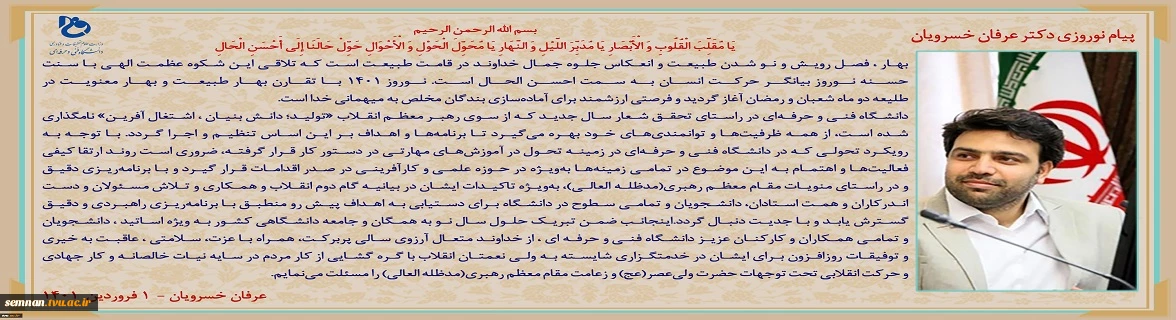 وزارت علوم، تحقیقات و فناوری
دانشگاه فنی و حرفه‌ای
پیام نوروزی دکتر عرفان خسرویان
بسم الله الرحمن الرحیم
یَا مُقَلِّبَ الْقُلُوبِ وَ الْأَبْصَارِ یَا مُدَبِّرَ اللَّیْلِ وَ النَّهَارِ یَا مُحَوِّلَ الْحَوْلِ وَ الْأَحْوَالِ حَوِّلْ حَالَنَا إِلَى أَحْسَنِ الْحَالِ
بهار ، فصل رویش و نو شدن طبیعت و انعکاس جلوه جمال خداوند در قامت طبیعت است که تلاقی این شکوه عظمت الهی با سنت
حسنه نوروز بیانگر حرکت انسان به سمت احسن الحال است. نوروز ۱۴۰۱ با تقارن بهار طبیعت و بهار معنویت در
طلیعه دو ماه شعبان و رمضان آغاز گردید و فرصتی ارزشمند برای آماده‌سازی بندگان مخلص به میهمانی خدا است.
دانشگاه فنی و حرفه‌ای در راستای تحقق شعار سال جدید که از سوی رهبر معظم انقلاب «تولید؛ دانش بنیان ، اشتغال آفرین» نامگذاری
شده است، از همه ظرفیت‌ها و توانمندی‌های خود بهره می‌گیرد تا برنامه‌ها و اهداف بر این اساس تنظیم و اجرا گردد. با توجه به
رویکرد تحولی که در دانشگاه فنی و حرفه‌ای در زمینه تحول در آموزش‌های مهارتی در دستور کار قرار گرفته، ضروری است روند ارتقا کیفی
فعالیت‌ها و اهتمام به این موضوع در تمامی زمینه‌ها به‌ویژه در حوزه علمی و کارآفرینی در صدر اقدامات قرار گیرد و با برنامه‌ریزی دقیق
و در راستای منویات مقام معظم رهبری(مدظله العالی)، به‌ویژه تاکیدات ایشان در بیانیه گام دوم انقلاب و همکاری و تلاش مسئولان و دست
اندرکاران و همت استادان، دانشجویان و تمامی سطوح در دانشگاه برای دستیابی به اهداف پیش رو منطبق با برنامه‌ریزی راهبردی و دقیق
گسترش یابد و با جدیت دنبال گردد.اینجانب ضمن تبریک حلول سال نو به همگان و جامعه دانشگاهی کشور به ویژه اساتید ، دانشجویان
و تمامی همکاران و کارکنان عزیز دانشگاه فنی و حرفه ای ، از خداوند متعال آرزوی سالی پربرکت، همراه با عزت، سلامتی ، عاقبت به خیری
و توفیقات روزافزون برای ایشان در خدمتگزاری شایسته به ولی نعمتان انقلاب با گره گشایی از کار مردم در سایه نیات خالصانه و کار جهادی
و حرکت انقلابی تحت توجهات حضرت ولی‌عصر(عج) و زعامت مقام معظم رهبری(مدظله العالی) را مسئلت می‌نمایم.
عرفان خسرویان - ۱ فروردین ۱۴۰۱
semnan.tvu.ac.ir